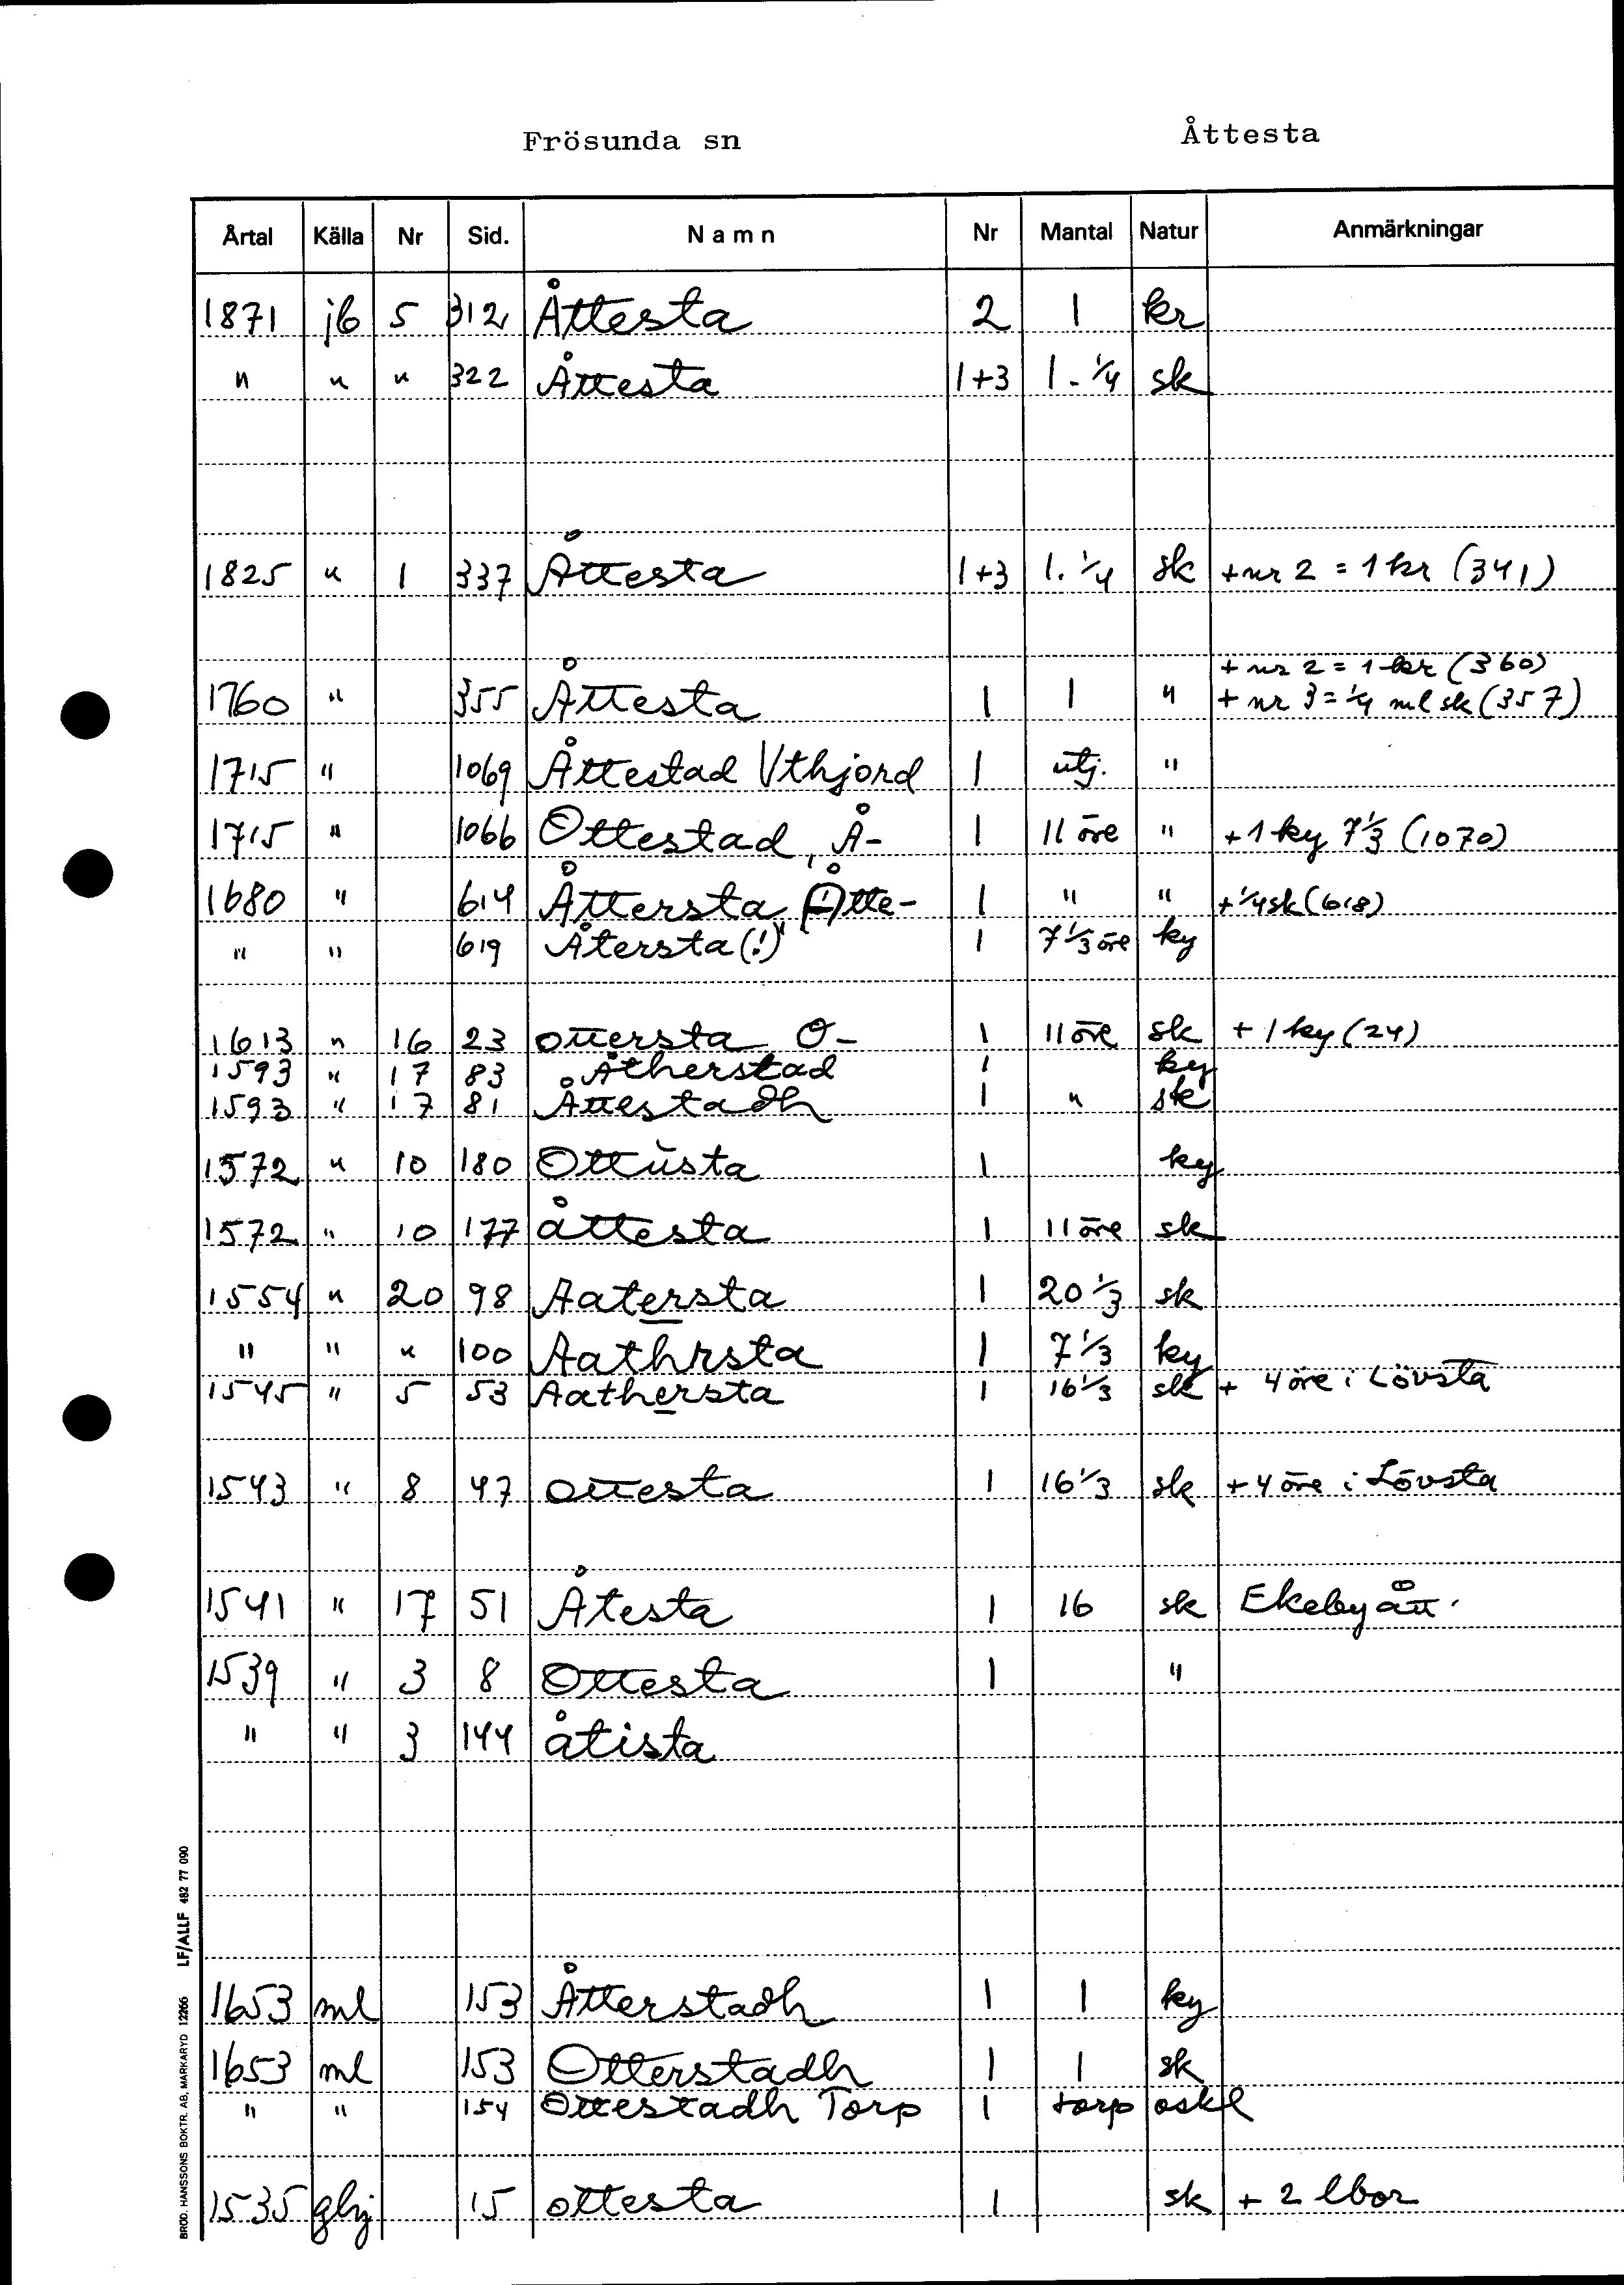 Frösunda sn Åttesta
Årtal Källa Nr Sid. Namn Nr Mantal Natur Anmärkningar
1871 jb 5 312 Åttesta 2 1 kr
" " " 322 Åttesta 1+3 1-1/4 sk
1825 " 1 337 Åttesta 1+3 1.1/4 sk +nr 2 = 1 kr (341)
+ nr 2 = 1 kr (360)
1760 " 355 Åttesta 1 1 " + nr 3 = 1/4 ml sk (357)
1715 " 1069 Åttestad Vthjord 1 utj. "
1715 " 1066 Ottestad, Å- 1 11 öre " +1 ky 7 1/3 (1070)
1680 " 614 Åttersta, Åtte- 1 " " +1/4 sk (618)
" " 619 Återsta (!) 1 7 1/3 öre ky
1613 " 16 23 ottersta O- 1 11 öre sk + 1 ky (24)
1593 " 17 83 Åtherstad 1 ky
1593 " 17 81 Åttestadh 1 " sk
1572 " 10 180 Ottusta 1 ky
1572 " 10 177 åttesta 1 11 öre sk
1554 " 20 98 Aatersta 1 20 1/3 sk
" " " 100 Aathrsta 1 7 1/3 ky
1545 " 5 53 Aathersta 1 16 1/3 sk + 4 öre i Lövsta
1543 " 8 47 ottesta 1 16 1/3 sk + 4 öre i Lövsta
1541 " 17 51 Åtesta 1 16 sk Ekeby ått.
1539 " 3 8 Ottesta 1 "
" " 3 144 åtista
1653 ml 153 Åtterstadh 1 1 ky
1653 ml 153 Otterstadh 1 1 sk
" " 154 Ottestadh Torp 1 torp oskl
1535 ghj 15 ottesta 1 sk + 2 lbor
BRÖD. HANSSONS BOKTR. AB, MARKARYD 12266 LF/ALLF 482 77 090